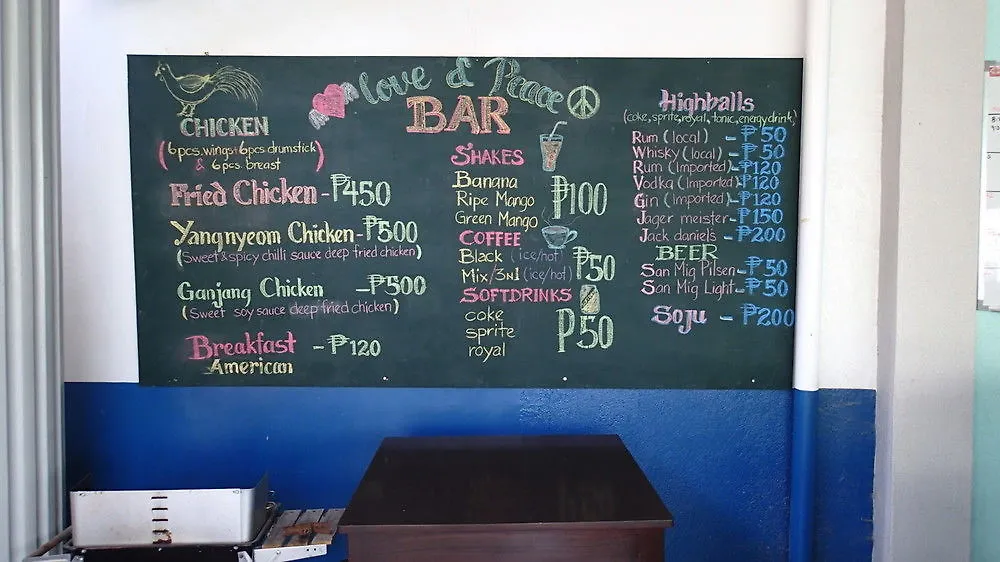 Love & Peace
BAR
CHICKEN
(6pcs. wings+6pcs drumstick
& 6pcs. breast)
Fried Chicken - ₱450
Yangnyeom Chicken - ₱500
(Sweet & spicy chilli sauce deep fried chicken)
Ganjang Chicken - ₱500
(Sweet soy sauce deep fried chicken)
Breakfast - ₱120
American
SHAKES
Banana
Ripe Mango ₱100
Green Mango
COFFEE
Black (ice/hot)
Mix/3N1 (ice/hot) ₱50
SOFTDRINKS
coke
sprite ₱50
royal
Highballs
(coke, sprite, royal, tonic, energy drink)
Rum (local) - ₱50
Whisky (local) - ₱50
Rum (Imported) - ₱120
Vodka (Imported) - ₱120
Gin (Imported) - ₱120
Jager meister - ₱150
Jack daniel's - ₱200
BEER
San Mig Pilsen - ₱50
San Mig Light - ₱50
Soju - ₱200